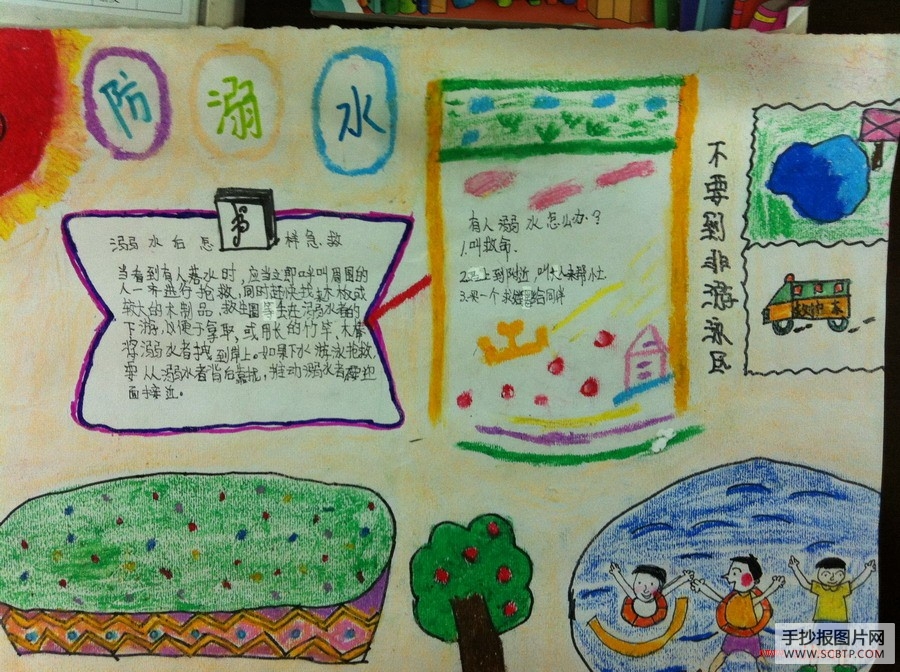 防 溺 水
溺水后怎样急救
当看到有人落水时，应当立即呼叫周围的
人一齐进行抢救，同时赶快找木板或
较大的木制品，救生圈等在溺水者的
下游，以便于拿取，或用长的竹竿，木棒
将溺水者拽到岸上。如果下水游泳抢救，
要从溺水者背后靠扰，推动溺水者
面接近。
有人溺水怎么办？
1.叫救命
2.马上到附近，叫大人来帮忙
3.求一个救给同伴
不要到非游泳区
救护车
手抄报图片网
WWW.SCBTP.COM